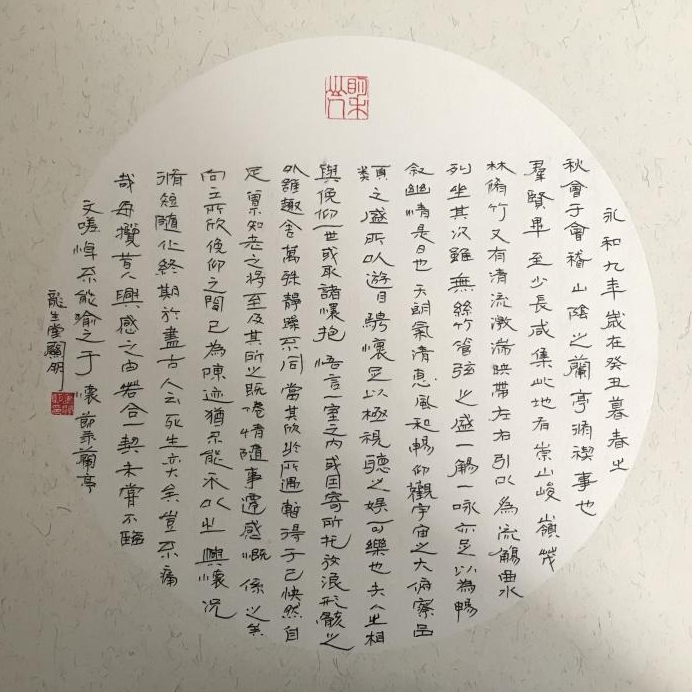 永和九年歲在癸丑暮春之
秋會于會稽山陰之蘭亭脩禊事也
羣賢畢至少長咸集此地有崇山峻嶺茂
林脩竹又有清流激湍映帶左右引以為流觴曲水
列坐其次雖無絲竹管弦之盛一觴一詠亦足以為暢
叙幽情是日也天朗氣清惠風和暢仰觀宇宙之大俯察品
類之盛所以遊目騁懷足以極視聽之娛可樂也夫人之相
與俛仰一世或取諸懷抱悟言一室之內或因寄所托放浪形骸之
外雖趣舍萬殊靜躁不同當其欣於所遇暫得于己快然自
足曾不知老之將至及其所之既惓情隨事遷感慨係之矣
向之所欣俛仰之間已為陳迹猶不能不以之興懷況
脩短隨化終期於盡古人云死生亦大矣豈不痛
哉每攬昔人興感之由若合一契未嘗不臨
文嗟悼不能喻之于懷節录蘭亭
龍生堂顯明